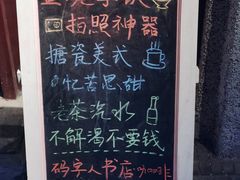 拍照神器
搪瓷美式
忆苦思甜
老茶汽水
不解渴不要钱
码字人书店